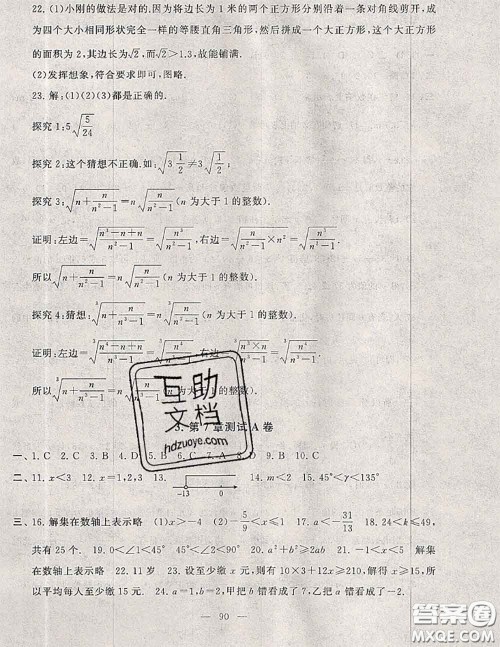 22. (1)小刚的做法是对的. 因为将边长为 1 米的两个正方形分别沿着一条对角线剪开, 成
为四个大小相同形状完全一样的等腰直角三角形, 然后拼成一个大正方形, 这个大正方形
的面积为 2, 其边长为√2, 而√2>1.3, 故能铺满.
(2)发挥想象, 符合要求即可, 图略.
23. 解: (1)(2)(3)都是正确的.
探究 1: 5√(5/24)
探究 2: 这个猜想不正确. 如: √(3 1/2)≠3√(1/2);
探究 3: √(n+n/(n²-1))=n√(n/(n²-1)) (n 为大于 1 的整数).
证明: 左边=√((n³-n+n)/(n²-1))=√(n³/(n²-1)), 右边=√(n/(n²-1)×n²)=√(n³/(n²-1)).
所以√(n+n/(n²-1))=n√(n/(n²-1)) (n 为大于 1 的整数).
探究 4: 猜想: ∛(n+n/(n³-1))=n∛(n/(n³-1)) (n 为大于 1 的整数).
证明: 左边=∛((n⁴-n+n)/(n³-1))=∛(n⁴/(n³-1)), 右边=∛((n³×n)/(n³-1))=∛(n⁴/(n³-1)).
所以∛(n+n/(n³-1))=n∛(n/(n³-1)) (n 为大于 1 的整数).
互助
文档
hdzuoye.com
3. 第 7 章测试 A 卷
一、1. C 2. C 3. D 4. A 5. B 6. D 8. A 9. D 10. C
二、11. x<3 12. x=1,2,3 13. -13 0 14. m<2 15. 45°<γ<135°
三、16. 解集在数轴上表示略 (1)x>-4 (2)-5/9<x≤1 17. a<-31/13 18. 24<k≤49,
共有 25 个. 19. 0<∠1<45° 45°<∠2<90° 20. a²+b²≥2ab 21. -1<x≤5 解集
在数轴上表示略 22. 11 岁 23. 设至少缴 x 元, 则有 10×3+12x≥210, 解得 x≥15. 所
以平均每人至少缴 15 元. 24. a=1, b=2, 甲把 b 错看成了 7, 乙把 a 错看成了-2.
— 90 —
答案圈
MXQE.COM